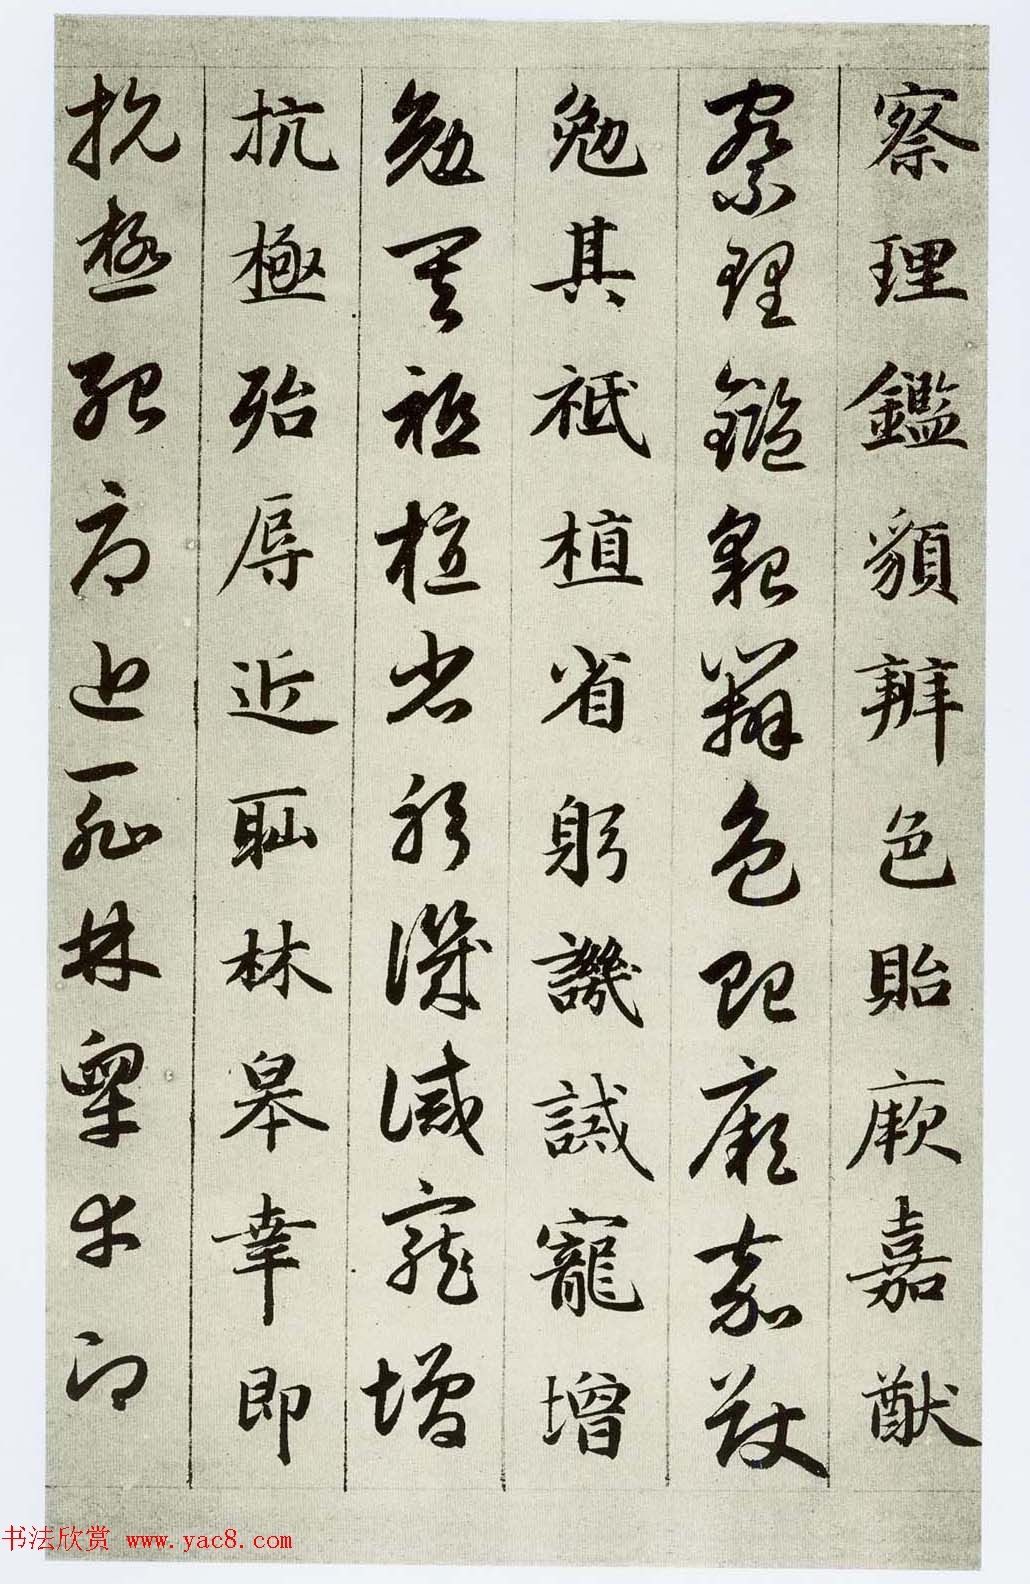 察理鑑貌辨色貽厥嘉猷
察理鑑貌辨色貽厥嘉猷
勉其祗植省躬譏誡寵增
勉其祗植省躬譏誡寵增
抗極殆辱近恥林皋幸即
抗極殆辱近恥林皋幸即
书法欣赏 www.yac8.com